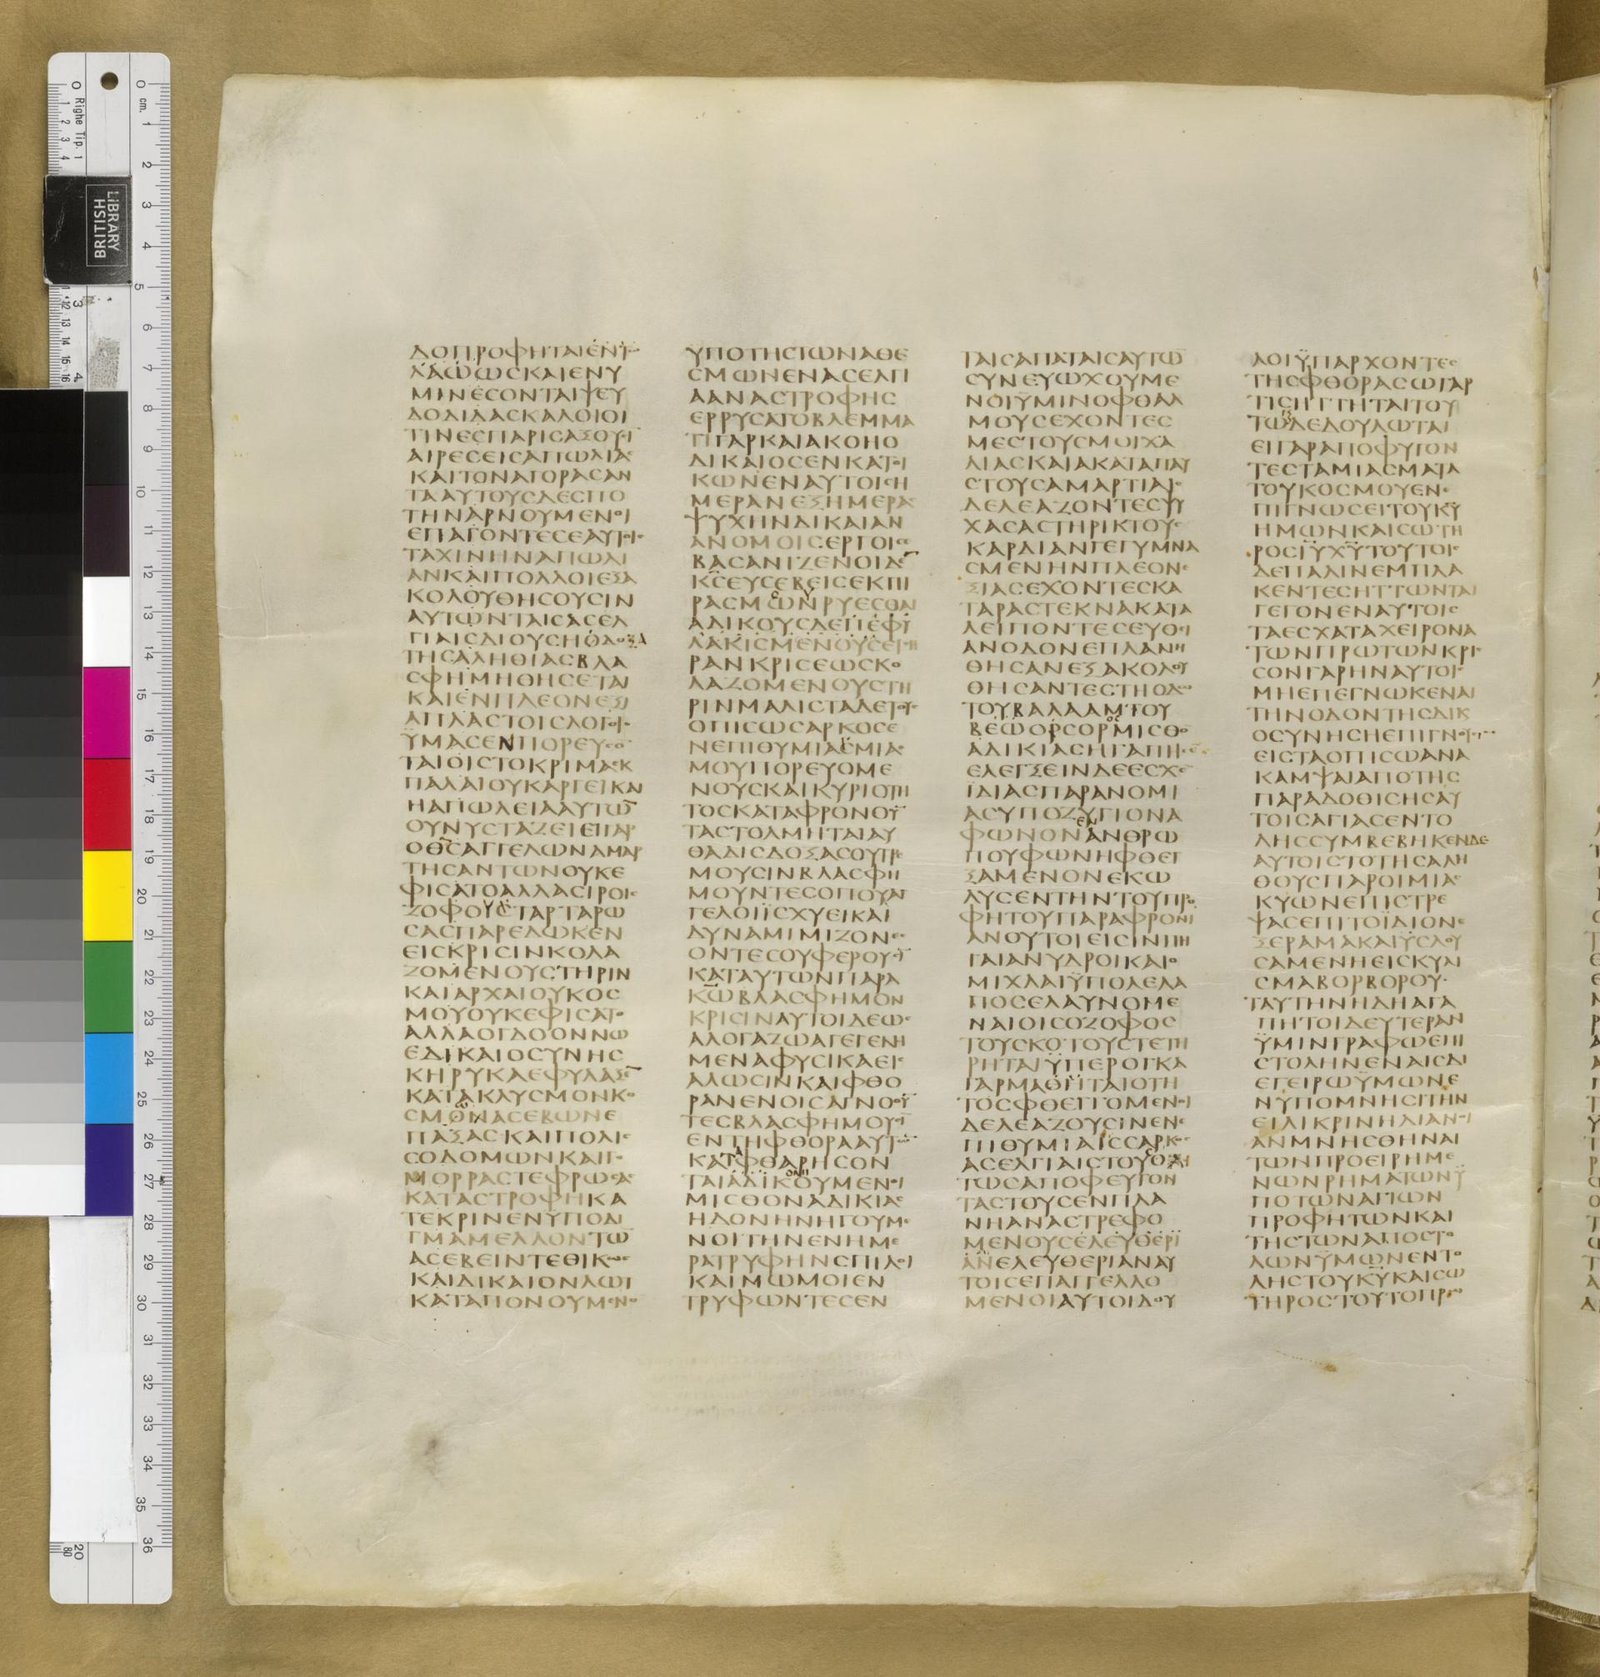 ΔΟΠΡΟΦΗΤΑΙΕΝΤ
ΛΑΩΩΣΚΑΙΕΝΥ
ΜΙΝΕϹΟΝΤΑΙΨΕΥ
ΔΟΔΙΔΑϹΚΑΛΟΙΟΙ
ΤΙΝΕϹΠΑΡΙϹΑΞΟΥϊ
ΑΙΡΕϹΕΙϹΑΠΩΛΙΑϹ
ΚΑΙΤΟΝΑΓΟΡΑϹΑΝ
ΤΑΑΥΤΟΥϹΔΕϹΠΟ
ΤΗΝΑΡΝΟΥΜΕΝΟΙ
ΕΠΑΓΟΝΤΕϹΕΑΥΤΟΙϹ
ΤΑΧΙΝΗΝΑΠΩΛΙ
ΑΝΚΑΙΠΟΛΛΟΙΕΞΑ
ΚΟΛΟΥΘΗϹΟΥϹΙΝ
ΑΥΤΩΝΤΑΙϹΑϹΕΛ
ΓΙΑΙϹΔΙΟΥϹΗΔΟΞΑ
ΤΗϹΑΛΗΘΙΑϹΒΛΑ
ϹΦΗΜΗΘΗϹΕΤΑΙ
ΚΑΙΕΝΠΛΕΟΝΕΞΙ
ΑΠΛΑϹΤΟΙϹΛΟΓΟΙϹ
ΥΜΑϹΕΝΠΟΡΕΥϹΟ
ΤΑΙΟΙϹΤΟΚΡΙΜΑΕΚ
ΠΑΛΑΙΟΥΚΑΡΓΕΙΚΑΙ
ΗΑΠΩΛΕΙΑΑΥΤΩ̅
ΟΥΝΥϹΤΑΖΕΙΕΙΓΑΡ
ΟΘ̅Ϲ̅ΑΓΓΕΛΩΝΑΜΑΡ
ΤΗϹΑΝΤΩΝΟΥΚΕ
ΦΙϹΑΤΟΑΛΛΑϹΙΡΟΙϹ
ΖΟΦΟΥϹΤΑΡΤΑΡΩ
ϹΑϹΠΑΡΕΔΩΚΕΝ
ΕΙϹΚΡΙϹΙΝΚΟΛΑ
ΖΟΜΕΝΟΥϹΤΗΡΙΝ
ΚΑΙΑΡΧΑΙΟΥΚΟϹ
ΜΟΥΟΥΚΕΦΙϹΑΤΟ
ΑΛΛΑΟΓΔΟΟΝΝΩ
ΕΔΙΚΑΙΟϹΥΝΗϹ
ΚΗΡΥΚΑΕΦΥΛΑΞΕ̅
ΚΑΤΑΚΛΥϹΜΟΝΚΟ
ϹΜΩΝΑϹΕΒΩΝΕ
ΠΑΞΑϹΚΑΙΠΟΛΙϹ
ϹΟΔΟΜΩΝΚΑΙΓΟ
ΜΟΡΡΑϹΤΕΦΡΩϹΑϹ
ΚΑΤΑϹΤΡΟΦΗΚΑ
ΤΕΚΡΙΝΕΝΥΠΟΔΙ
ΓΜΑΜΕΛΛΟΝΤΩ̅
ΑϹΕΒΕΙΝΤΕΘΙΚΩϹ
ΚΑΙΔΙΚΑΙΟΝΛΩΤ
ΚΑΤΑΠΟΝΟΥΜΕΝΟ
ΥΠΟΤΗϹΤΩΝΑΘΕ
ϹΜΩΝΕΝΑϹΕΛΓΙ
ΑΑΝΑϹΤΡΟΦΗϹ
ΕΡΡΥϹΑΤΟΒΛΕΜΜΑ
ΤΙΓΑΡΚΑΙΑΚΟΗΟ
ΔΙΚΑΙΟϹΕΝΚΑΤΟΙ
ΚΩΝΕΝΑΥΤΟΙϹΗ
ΜΕΡΑΝΕΞΗΜΕΡΑϹ
ΨΥΧΗΝΔΙΚΑΙΑΝ
ΑΝΟΜΟΙϹΕΡΓΟΙϹ
ΒΑϹΑΝΙΖΕΝΟΙΔΕ̅
Κ̅Ϲ̅ΕΥϹΕΒΕΙϹΕΚΠΙ
ΡΑϹΜΟΥΡΥΕϹΘΑΙ
ΑΔΙΚΟΥϹΔΕΕΙϹ
ΛΑΚΙϹΜΕΝΟΥϹΕΙϹΗ
ΡΑΝΚΡΙϹΕΩϹΚΟ
ΛΑΖΟΜΕΝΟΥϹΤΗ
ΡΙΝΜΑΛΙϹΤΑΔΕΤΟΥϹ
ΟΠΙϹΩϹΑΡΚΟϹΕ
ΝΕΠΙΘΥΜΙΑΜΙΑϹ
ΜΟΥΠΟΡΕΥΟΜΕ
ΝΟΥϹΚΑΙΚΥΡΙΟΤΗ
ΤΟϹΚΑΤΑΦΡΟΝΟΥ̅
ΤΑϹΤΟΛΜΗΤΑΙΑΥ
ΘΑΔΙϹΔΟΞΑϹΟΥΤΡΕ
ΜΟΥϹΙΝΒΛΑϹΦΗ
ΜΟΥΝΤΕϹΟΠΟΥΑΓ
ΓΕΛΟΙΪϹΧΥΕΙΚΑΙ
ΔΥΝΑΜΙΜΙΖΟΝΕϹ
ΟΝΤΕϹΟΥΦΕΡΟΥϹΙ̅
ΚΑΤΑΥΤΩΝΠΑΡΑ
Κ̅Ω̅ΒΛΑϹΦΗΜΟΝ
ΚΡΙϹΙΝΑΥΤΟΙΔΕΩϹ
ΑΛΟΓΑΖΩΑΓΕΓΕΝΗ
ΜΕΝΑΦΥϹΙΚΑΕΙϹ
ΑΛΩϹΙΝΚΑΙΦΘΟ
ΡΑΝΕΝΟΙϹΑΓΝΟΟΥ̅
ΤΕϹΒΛΑϹΦΗΜΟΥϹΙ̅
ΕΝΤΗΦΘΟΡΑΑΥΤΩ̅
ΚΑΤΑΦΘΑΡΗϹΟΝ
ΤΑΙΑΔΙΚΟΥΜΕΝΟΙ
ΜΙϹΘΟΝΑΔΙΚΙΑϹ
ΗΔΟΝΗΝΗΓΟΥΜΕ
ΝΟΙΤΗΝΕΝΗΜΕ
ΡΑΤΡΥΦΗΝϹΠΙΛΟΙ
ΚΑΙΜΩΜΟΙΕΝ
ΤΡΥΦΩΝΤΕϹΕΝ
ΤΑΙϹΑΠΑΤΑΙϹΑΥΤΩ̅
ϹΥΝΕΥΩΧΟΥΜΕ
ΝΟΙΫΜΙΝΟΦΘΑΛ
ΜΟΥϹΕΧΟΝΤΕϹ
ΜΕϹΤΟΥϹΜΟΙΧΑ
ΛΙΑϹΚΑΙΑΚΑΤΑΠΑΥ
ϹΤΟΥϹΑΜΑΡΤΙΑΙϹ
ΔΕΛΕΑΖΟΝΤΕϹΨΥ
ΧΑϹΑϹΤΗΡΙΚΤΟΥϹ
ΚΑΡΔΙΑΝΓΕΓΥΜΝΑ
ϹΜΕΝΗΝΠΛΕΟΝΕ
ΞΙΑϹΕΧΟΝΤΕϹΚΑ
ΤΑΡΑϹΤΕΚΝΑΚΑΤΑ
ΛΕΙΠΟΝΤΕϹΕΥΘΙ
ΑΝΟΔΟΝΕΠΛΑΝΗ
ΘΗϹΑΝΕΞΑΚΟΛΟΥ
ΘΗϹΑΝΤΕϹΤΗΟΔΩ
ΤΟΥΒΑΛΑΑΜΤΟΥ
ΒΕΩΟΡϹΟΡΜΙϹΘΟ
ΑΔΙΚΙΑϹΗΓΑΠΗϹΕ
ΕΛΕΓΞΕΙΝΔΕΕϹΧΕ
ΪΔΙΑϹΠΑΡΑΝΟΜΙ
ΑϹΥΠΟΖΥΓΙΟΝΑ
ΦΩΝΟΝΕΝΑΝΘΡΩ
ΠΟΥΦΩΝΗΦΘΕΓ
ΞΑΜΕΝΟΝΕΚΩ
ΛΥϹΕΝΤΗΝΤΟΥΠΡΟ
ΦΗΤΟΥΠΑΡΑΦΡΟΝΙ
ΑΝΟΥΤΟΙΕΙϹΙΝΠΗ
ΓΑΙΑΝΥΔΡΟΙΚΑΙΟ
ΜΙΧΛΑΙΫΠΟΛΕΛΑ
ΠΟϹΕΛΑΥΝΟΜΕ
ΝΑΙΟΙϹΟΖΟΦΟϹ
ΤΟΥϹΚΟΤΟΥϹΤΕΤΗ
ΡΗΤΑΙΫΠΕΡΟΓΚΑ
ΓΑΡΜΑΘΗΤΑΙΟΤΗ
ΤΟϹΦΘΕΓΓΟΜΕΝΟΙ
ΔΕΛΕΑΖΟΥϹΙΝΕΝΕ
ΠΙΘΥΜΙΑΙϹϹΑΡΚΟϹ
ΑϹΕΛΓΙΑΙϹΤΟΥϹΟΛΙ
ΤΩϹΑΠΟΦΕΥΓΟΝ
ΤΑϹΤΟΥϹΕΝΠΛΑ
ΝΗΑΝΑϹΤΡΕΦΟ
ΜΕΝΟΥϹΕΛΕΥΘΕΡΙ
ΑΝΕΛΕΥΘΕΡΙΑΝΑΥ
ΤΟΙϹΕΠΑΓΓΕΛΛΟ
ΜΕΝΟΙΑΥΤΟΙΔΟΥ
ΛΟΙΫΠΑΡΧΟΝΤΕϹ
ΤΗϹΦΘΟΡΑϹΩΓΑΡ
ΤΙϹΗΤΤΗΤΑΙΤΟΥ
ΤΩΔΕΔΟΥΛΩΤΑΙ
ΕΙΓΑΡΑΠΟΦΥΓΟΝ
ΤΕϹΤΑΜΙΑϹΜΑΤΑ
ΤΟΥΚΟϹΜΟΥΕΝΕ
ΠΙΓΝΩϹΕΙΤΟΥΚ̅Υ̅
ΗΜΩΝΚΑΙϹΩΤΗ
ΡΟϹΙ̅Υ̅Χ̅Υ̅ΤΟΥΤΟΙϹ
ΔΕΠΑΛΙΝΕΜΠΛΑ
ΚΕΝΤΕϹΗΤΤΩΝΤΑΙ
ΓΕΓΟΝΕΝΑΥΤΟΙϹ
ΤΑΕϹΧΑΤΑΧΕΙΡΟΝΑ
ΤΩΝΠΡΩΤΩΝΚΡΙϹ
ϹΟΝΓΑΡΗΝΑΥΤΟΙϹ
ΜΗΕΠΕΓΝΩΚΕΝΑΙ
ΤΗΝΟΔΟΝΤΗϹΔΙΚ
ΟϹΥΝΗϹΗΕΠΙΓΝΟΥϹΙ̅
ΕΙϹΤΑΟΠΙϹΩΑΝΑ
ΚΑΜΨΑΙΑΠΟΤΗϹ
ΠΑΡΑΔΟΘΙϹΗϹΑΥ
ΤΟΙϹΑΓΙΑϹΕΝΤΟ
ΛΗϹϹΥΜΒΕΒΗΚΕΝΔΕ
ΑΥΤΟΙϹΤΟΤΗϹΑΛΗ
ΘΟΥϹΠΑΡΟΙΜΙΑϹ
ΚΥΩΝΕΠΙϹΤΡΕ
ΨΑϹΕΠΙΤΟΪΔΙΟΝΕ
ΞΕΡΑΜΑΚΑΙΫϹΛΟΥ
ϹΑΜΕΝΗΕΙϹΚΥΛΙ
ϹΜΑΒΟΡΒΟΡΟΥ
ΤΑΥΤΗΝΗΔΗΑΓΑ
ΠΗΤΟΙΔΕΥΤΕΡΑΝ
ΫΜΙΝΓΡΑΦΩΕΠΙ
ϹΤΟΛΗΝΕΝΑΙϹΔΙ
ΕΓΕΙΡΩΫΜΩΝΕ
ΝΥΠΟΜΝΗϹΙΤΗΝ
ΕΙΛΙΚΡΙΝΗΔΙΑΝΟΙ
ΑΝΜΝΗϹΘΗΝΑΙ
ΤΩΝΠΡΟΕΙΡΗΜΕ
ΝΩΝΡΗΜΑΤΩΝΫ
ΠΟΤΩΝΑΓΙΩΝ
ΠΡΟΦΗΤΩΝΚΑΙ
ΤΗϹΤΩΝΑΠΟϹΤΟ
ΛΩΝΫΜΩΝΕΝΤΟ
ΛΗϹΤΟΥΚ̅Υ̅ΚΑΙϹΩ
ΤΗΡΟϹΤΟΥΤΟΠΡΩ